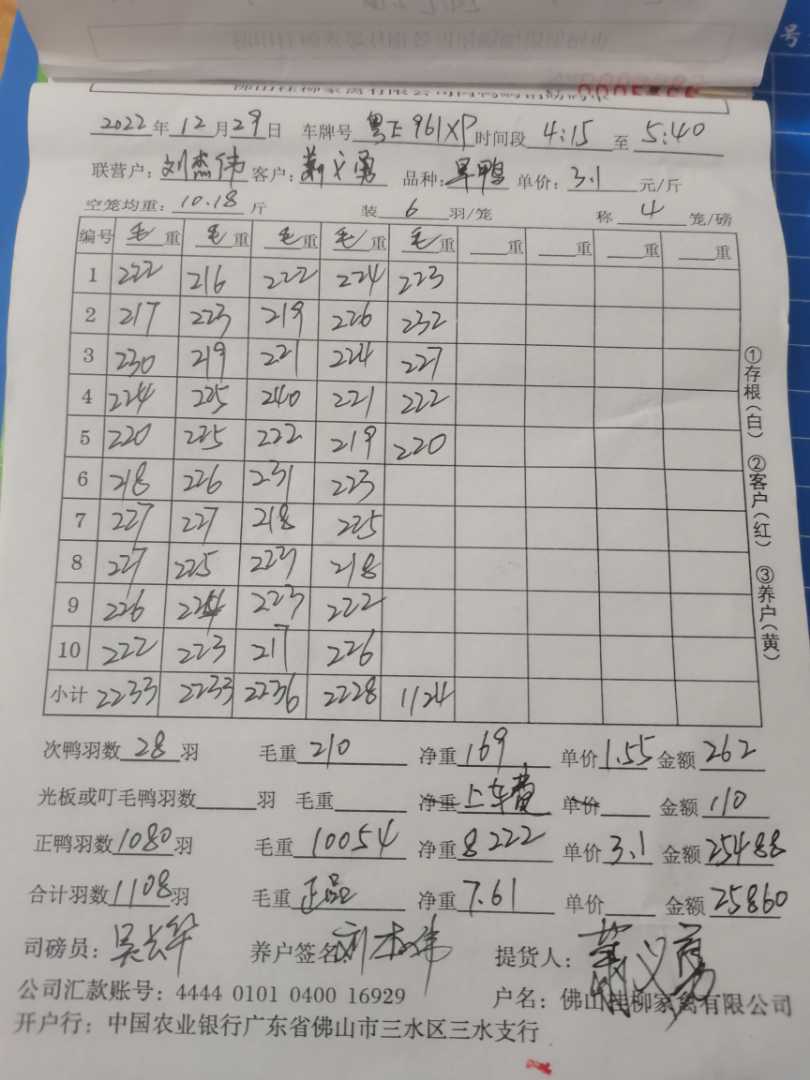 号
2022年12月29日 车牌号 粤E961XP 时间段 4:15 至 5:40
联营户：刘杰伟 客户： 义勇 品种：旱鸭 单价：3.1 元/斤
空笼均重：10.18 斤 装 6 羽/笼 称 4 笼/磅
编号 毛重 毛重 毛重 毛重 毛重 重 重 重 重
1 222 216 222 224 223
2 217 223 219 226 232
3 230 219 221 224 227
4 224 225 240 221 222
5 220 225 222 219 220
6 218 226 231 223
7 227 227 218 225
8 227 225 223 218
9 226 224 223 222
10 222 223 217 226
小计 2233 2233 2236 2228 1124
次鸭羽数 28 羽 毛重 210 净重 169 单价 1.55 金额 262
光板或叮毛鸭羽数 羽 毛重 净重 上车费 单价 金额 110
正鸭羽数 1080 羽 毛重 10054 净重 8222 单价 3.1 金额 25488
合计羽数 1108 羽 毛重 正品 净重 7.61 单价 金额 25860
司磅员：吴长华 养户签名 刘杰伟 提货人： 义勇
公司汇款账号：4444 0101 0400 16929 户名：佛山桂柳家禽有限公司
开户行：中国农业银行广东省佛山市三水区三水支行
①存根(白) ②客户(红) ③养户(黄)